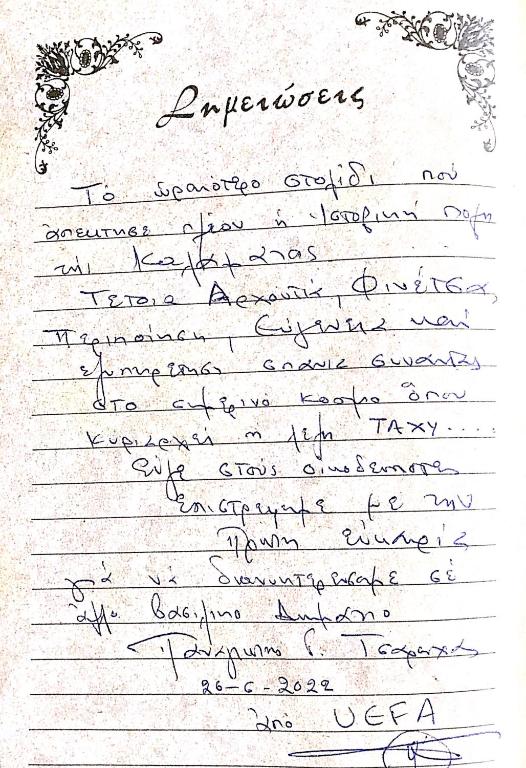 Σημειώσεις
Τό ὡραιότερο στολίδι πού
ἀπέκτησε πλέον ἡ ἱστορική πόλη
τῆς Καλαμάτας
Τέτοια Ἀρχοντιά, Φινέτσα,
Περιποίηση, Εὐγένεια καί
ἐξυπηρέτηση σπάνια συναντᾶς
στο σημερινό κόσμο ὅπου
κυριαρχεῖ ἡ λέξη ΤΑΧΥ....
Εὖγε στούς οἰκοδεσπότες
Ἐπιστρέψαμε με την
Πρώτη εὐκαιρία
γιά νά διανυκτερεύσαμε σέ
ἄλλο βασιλικό Δωμάτιο
Παναγιώτης
26-6-2022
ἀπό UEFA